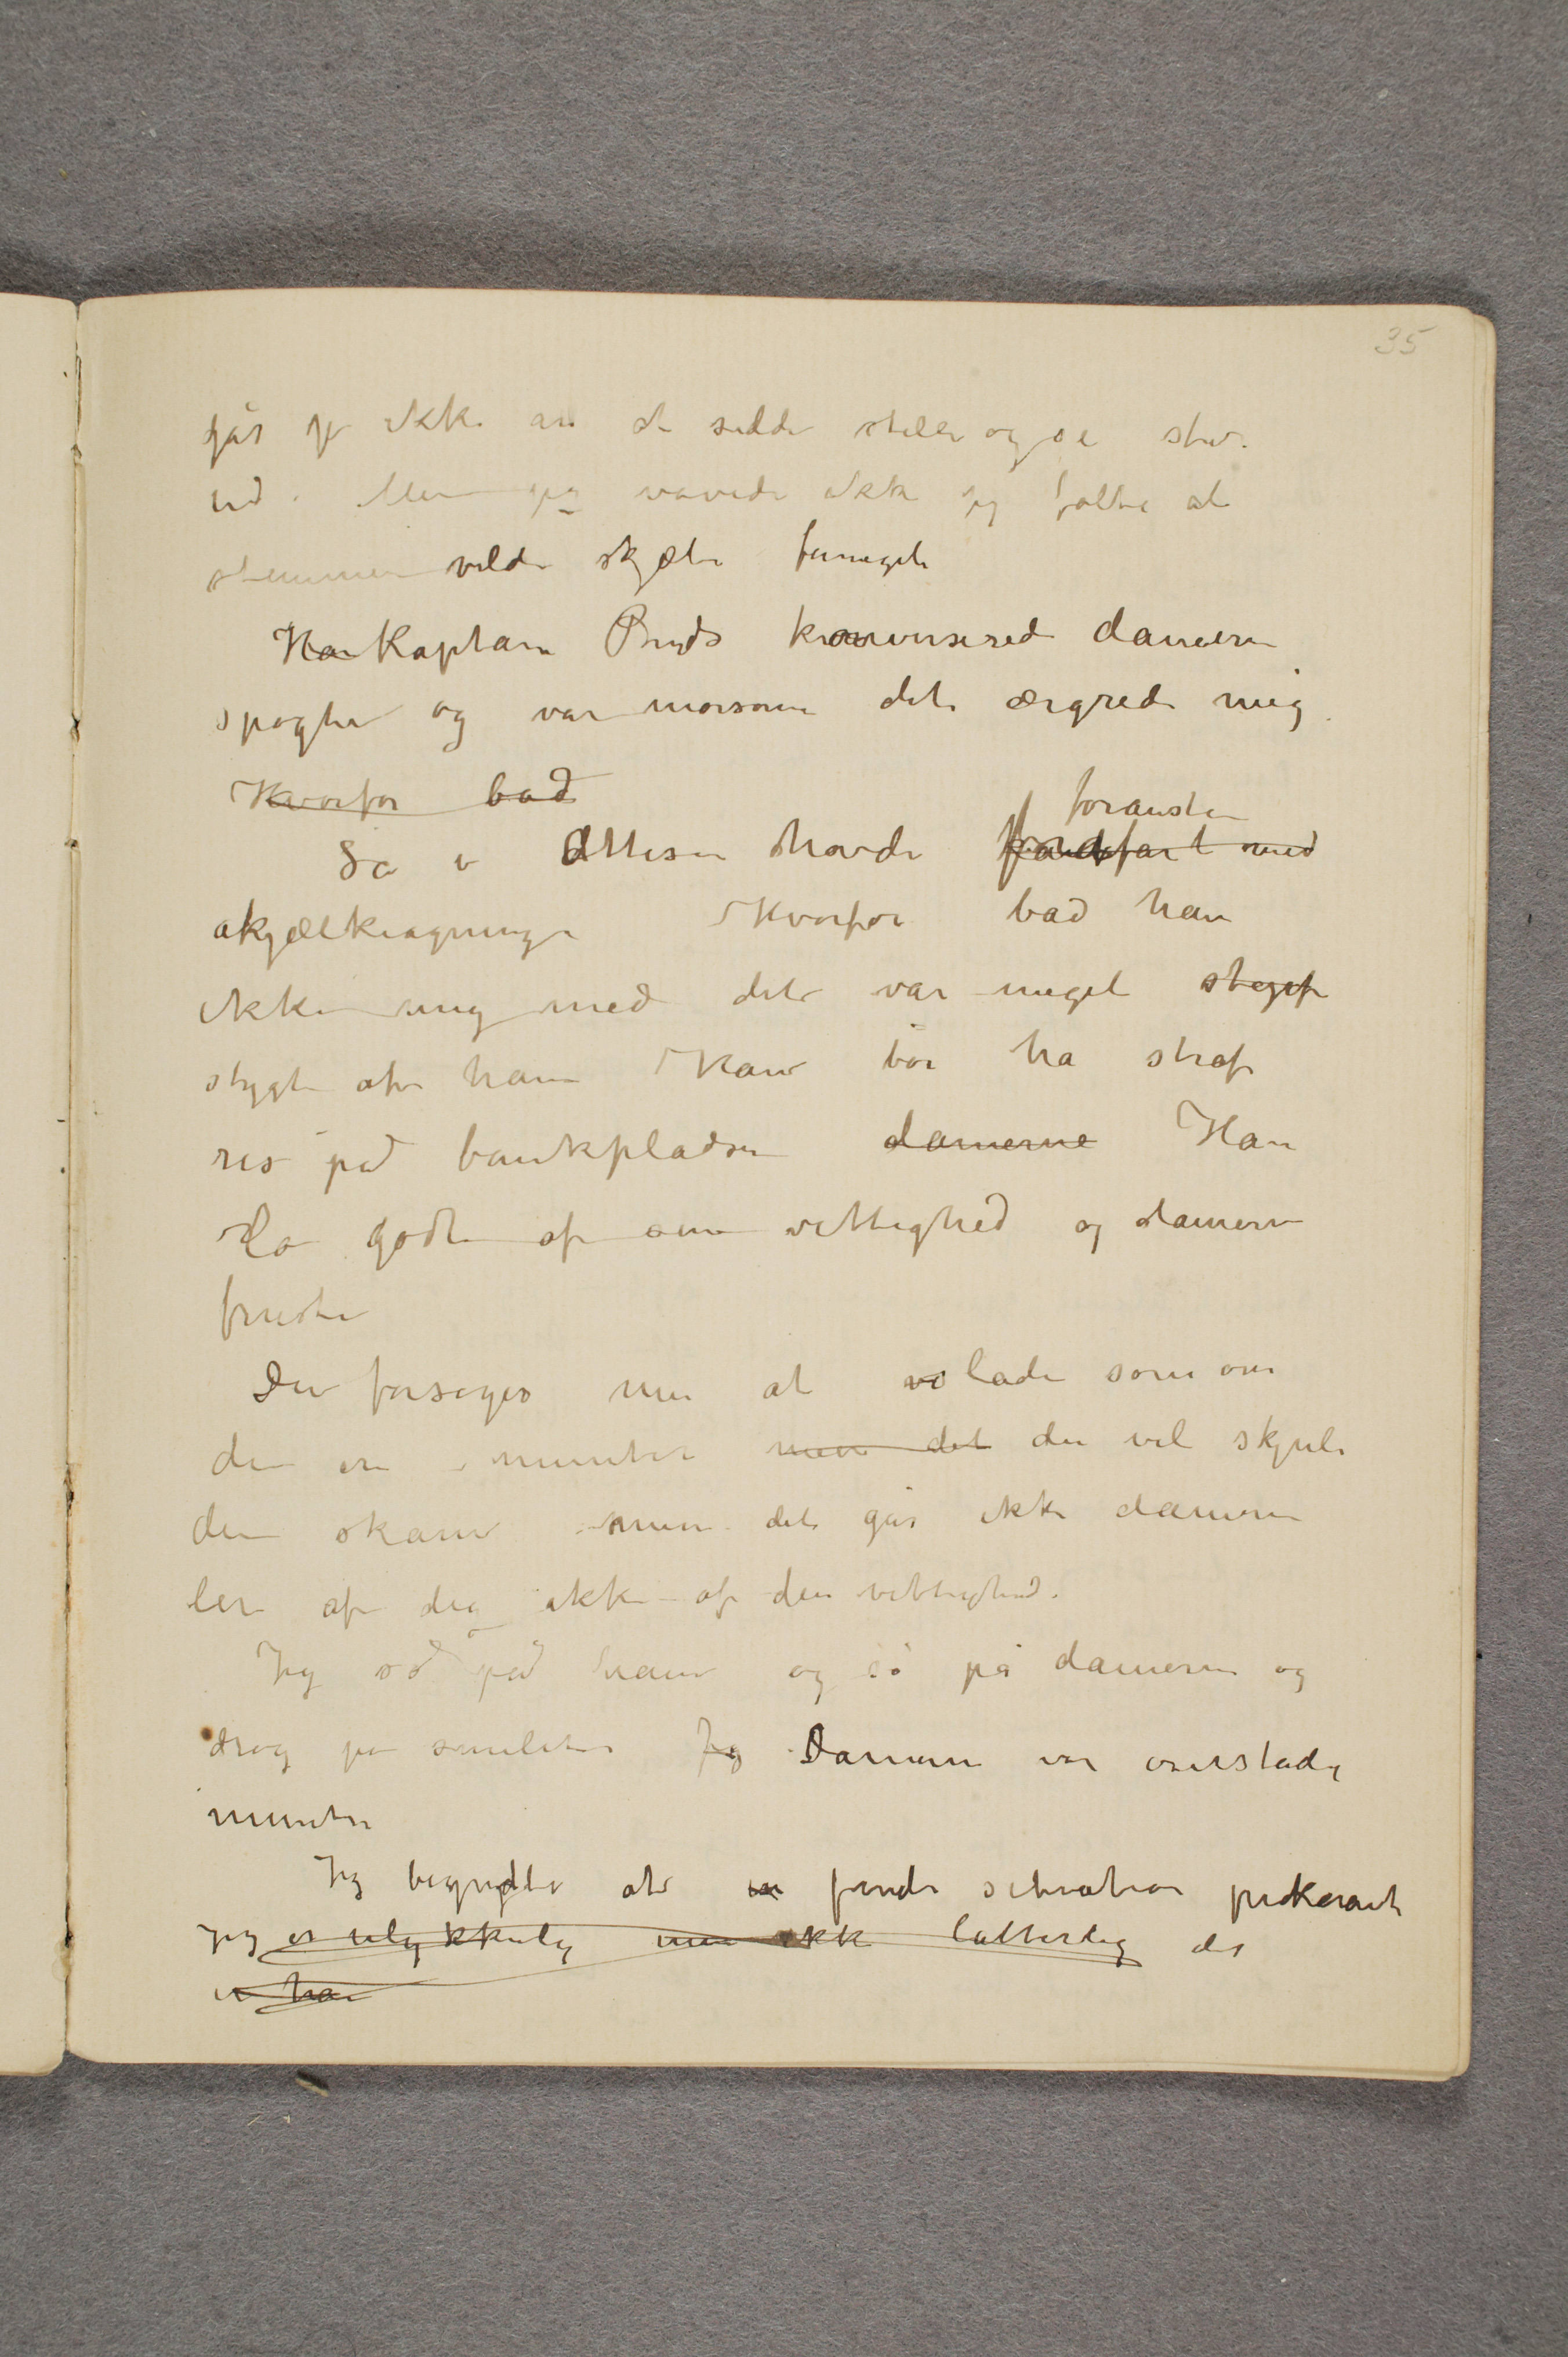 35
går jo ikke an at sidde stille og se stiv
ud. Men jeg vovede ikke jeg følte at
stemmen vilde skjælve formeget
Han Kaptain Buds konverserede damerne
spøgte og var morsom det ærgrede mig.
Hvorfor bad
foranstaltet
Så i Ditten havde med
akjælkeagning Hvorfor bad han
ikke mig med det var meget stygt
stygt af ham Han bør ha straf
ris på bankpladsen damerne Han
lo godt af sin vittighed og damerne
fniste
Du forsøger nu at vi lade som om
du er munter men det du vil skjule
din skam men det går ikke damerne
ler af dig ikke af din vittighed.
Jeg så på ham og så på damerne og
drog på smilet Jeg Damerne var ovenstadig
muntre
Jeg begyndte at finde situation pikerant
jeg er ulykkelig men ikke latterlig det
er han